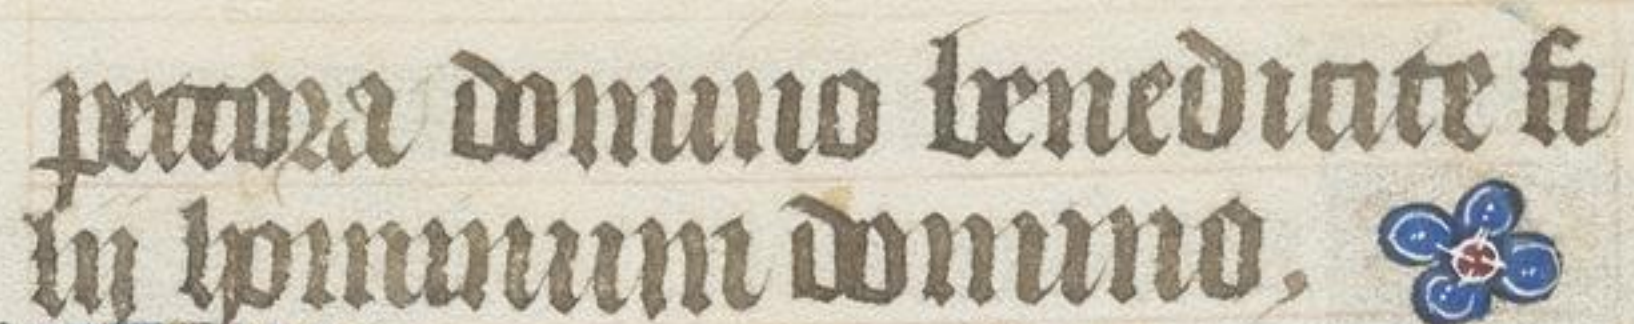 peccora domino benedicite fi
lij hominum domino,